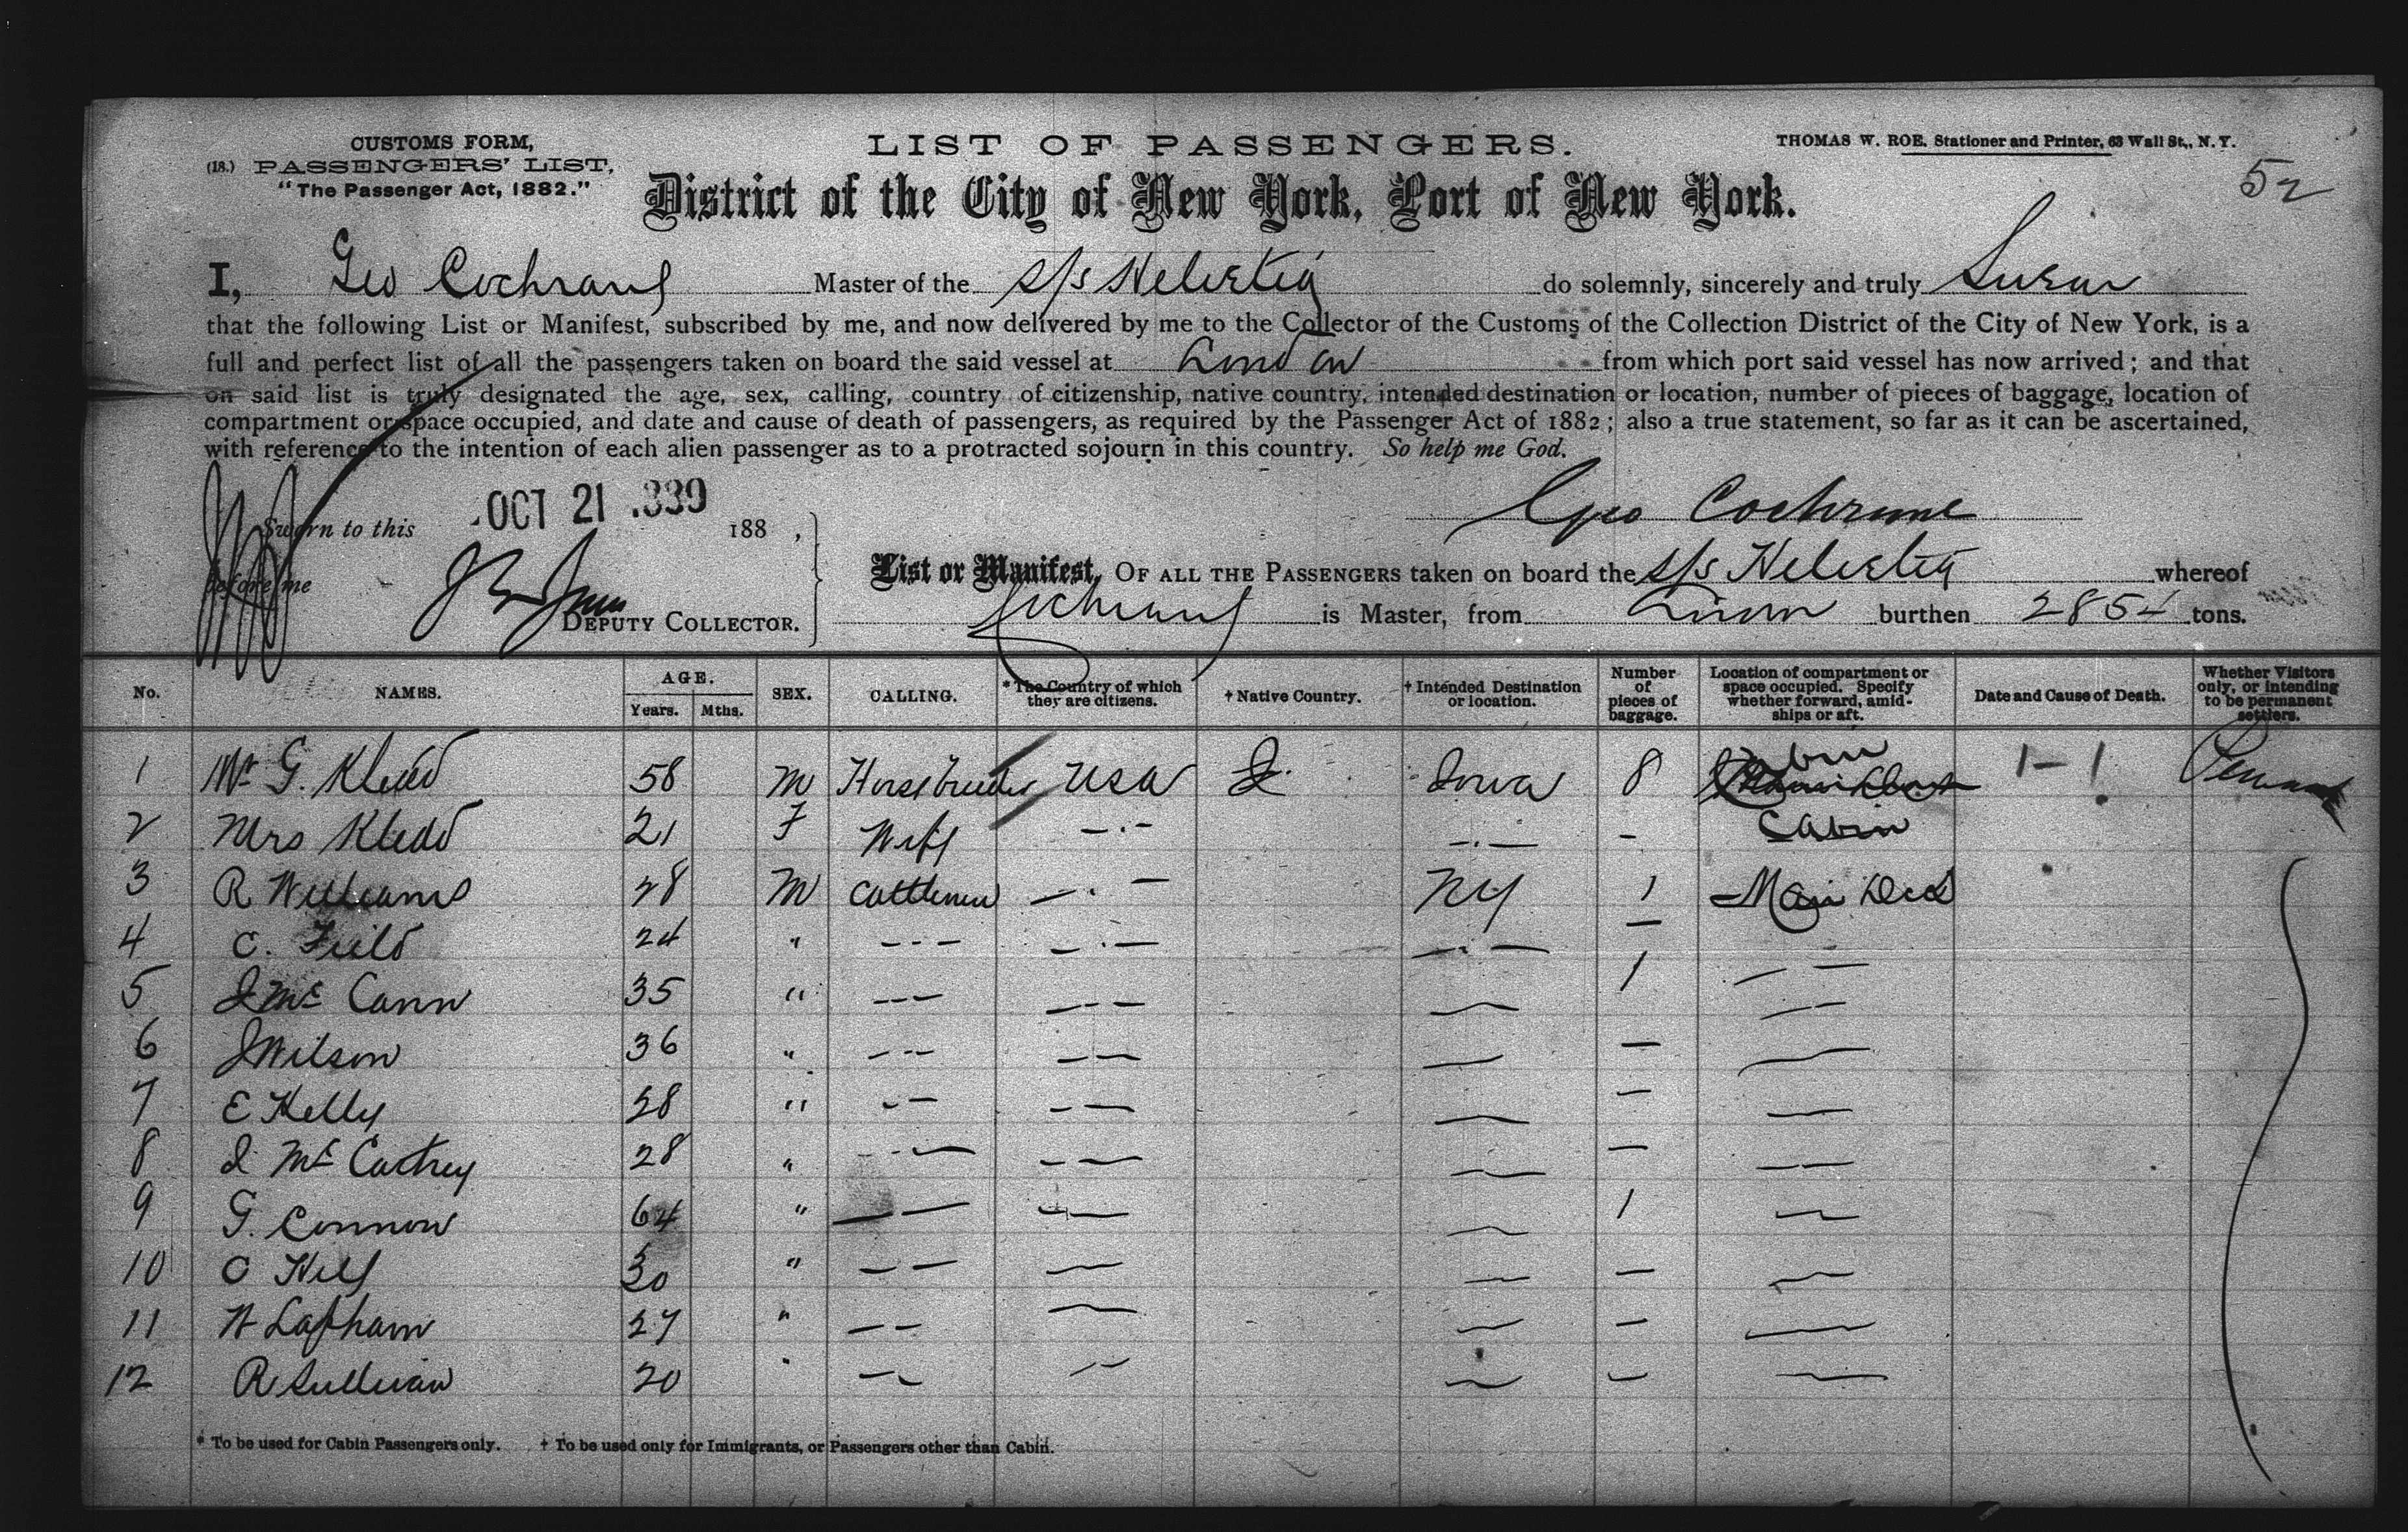 CUSTOMS FORM,
(18.) PASSENGERS' LIST,
"The Passenger Act, 1882."
LIST OF PASSENGERS.
THOMAS W. ROE, Stationer and Printer, 63 Wall St., N. Y.
52
District of the City of New York, Port of New York.
I, Geo Cochrane Master of the s/s Helvetia do solemnly, sincerely and truly Swear
that the following List or Manifest, subscribed by me, and now delivered by me to the Collector of the Customs of the Collection District of the City of New York, is a
full and perfect list of all the passengers taken on board the said vessel at London from which port said vessel has now arrived; and that
on said list is truly designated the age, sex, calling, country of citizenship, native country, intended destination or location, number of pieces of baggage, location of
compartment or space occupied, and date and cause of death of passengers, as required by the Passenger Act of 1882; also a true statement, so far as it can be ascertained,
with reference to the intention of each alien passenger as to a protracted sojourn in this country. So help me God.
Sworn to this OCT 21 188 ,
Geo Cochrane
before me
DEPUTY COLLECTOR.
List or Manifest, OF ALL THE PASSENGERS taken on board the s/s Helvetia whereof
Cochrane is Master, from London burthen 2854 tons.
No. NAMES. AGE. Years. Mths. SEX. CALLING. * The Country of which they are citizens. † Native Country. † Intended Destination or location. Number of pieces of baggage. Location of compartment or space occupied. Specify whether forward, amidships or aft. Date and Cause of Death. Whether Visitors only, or intending to be permanent settlers.
1 Mr G. 58 M Horsebreeder USA Iowa 8 Cabin 1-1
2 Mrs 21 F Wife —·— —·— - Cabin
3 R Williams 28 M Cattlemen —·— NY 1 Main Deck
4 C. Field 24 " —·— —·— —·— — — —
5 J Mc Cann 35 " — — — — — 1 — —
6 J Wilson 36 " — — — — — — —
7 E Kelly 28 " — — — — — — —
8 J. Mc Cartney 28 " — — — — — — — —
9 G. Connor 64 " — — — — — 1 —
10 C 30 " — — — — — —
11 W Lapham 27 " — — — — — —
12 R Sullivan 20 " — — — — — —
* To be used for Cabin Passengers only. † To be used only for Immigrants, or Passengers other than Cabin.